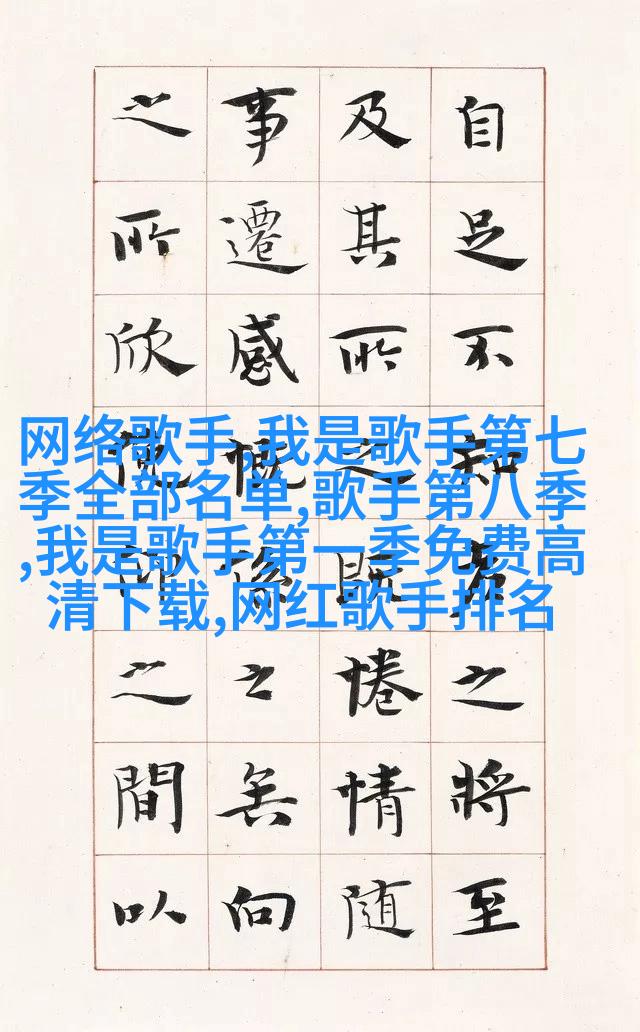 自足不知老之將至
及其所之既惓情隨
事遷感慨係之矣向
之所欣俛仰之間以
网络歌手,我是歌手第七
季全部名单,歌手第八季
,我是歌手第一季免费高
清下载,网红歌手排名